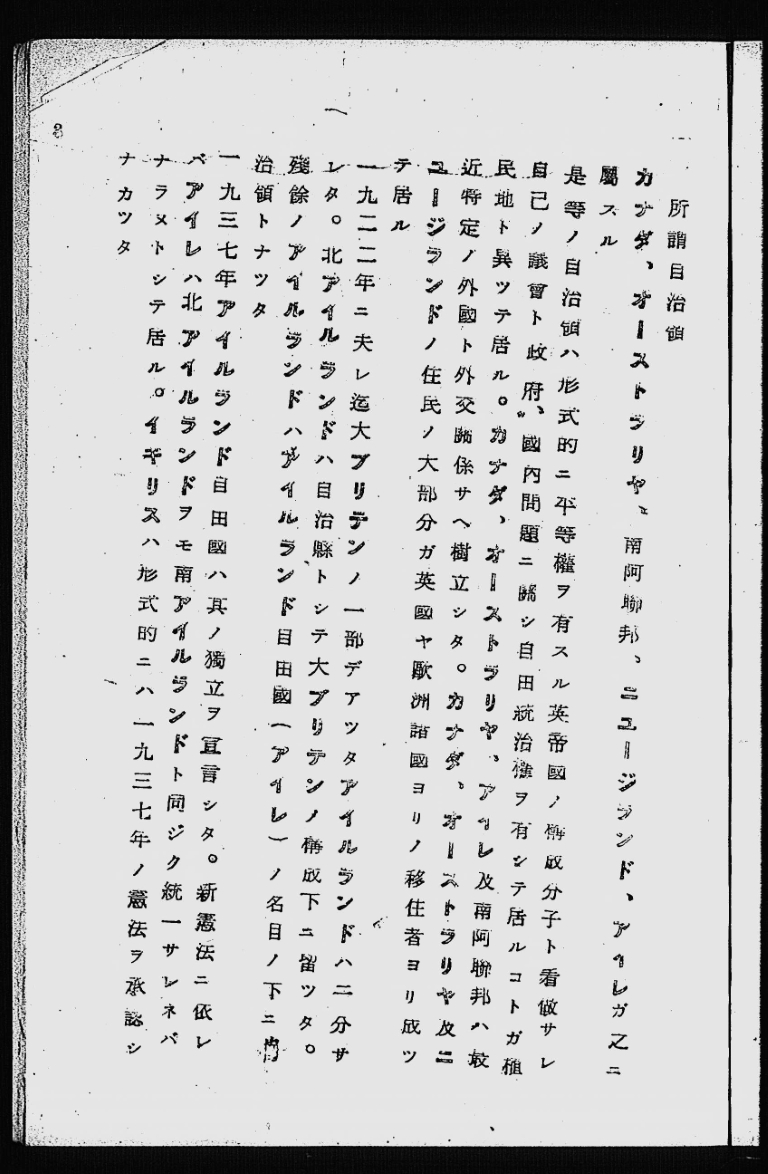 一
3
所謂自治領
カナダ、オーストラリヤ、南阿聯邦、ニュージランド、アイレガ之ニ
屬スル
是等ノ自治領ハ形式的ニ平等權ヲ有スル英帝國ノ構成分子ト看做サレ
自己ノ議會ト政府、國內問題ニ關シ自由統治權ヲ有シテ居ルコトガ植
民地ト異ツテ居ル。カナダ、オーストラリヤ、アイレ及南阿聯邦ハ最
近特定ノ外國ト外交關係サヘ樹立シタ。カナダ、オーストラリヤ及ニ
ユージランドノ住民ノ大部分ガ英國ヤ歐洲諸國ヨリノ移住者ヨリ成ツ
テ居ル
一九二二年ニ夫レ迄大ブリテンノ一部デアツタアイルランドハ二分サ
レタ。北アイルランドハ自治縣トシテ大ブリテンノ構成下ニ留ツタ。
殘餘ノアイルランドハアイルランド自由國(アイレ)ノ名目ノ下ニ
治領トナツタ
一九三七年アイルランド自由國ハ其ノ獨立ヲ宣言シタ。新憲法ニ依レ
バアイレハ北アイルランドヲモ南アイルランドト同ジク統一サレネバ
ナラヌトシテ居ル。イギリスハ形式的ニハ一九三七年ノ憲法ヲ承認シ
ナカツタ